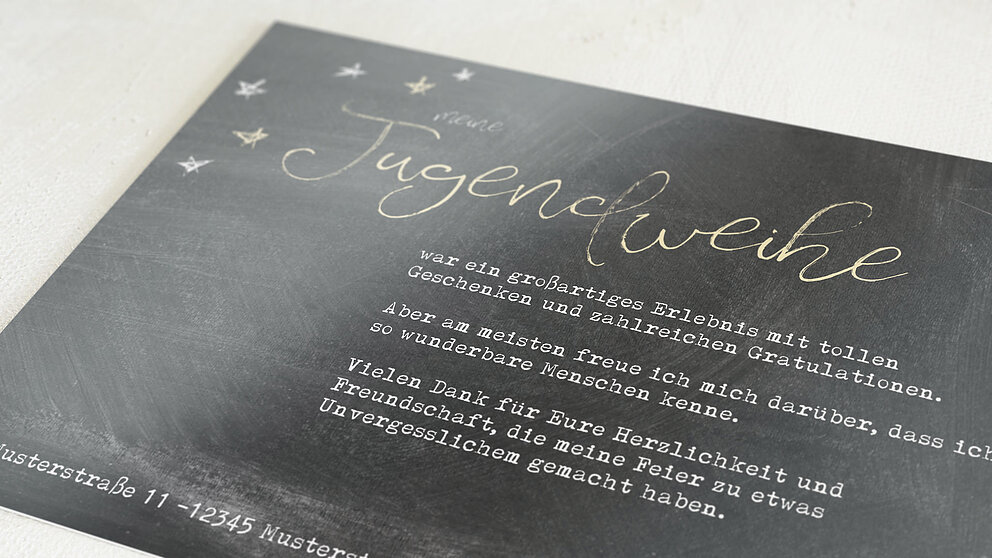 meine
Jugendweihe
war ein großartiges Erlebnis mit tollen
Geschenken und zahlreichen Gratulationen.
Aber am meisten freue ich mich darüber, dass ich
so wunderbare Menschen kenne.
Vielen Dank für Eure Herzlichkeit und
Freundschaft, die meine Feier zu etwas
Unvergesslichem gemacht haben.
Musterstraße 11 -12345 Musterst